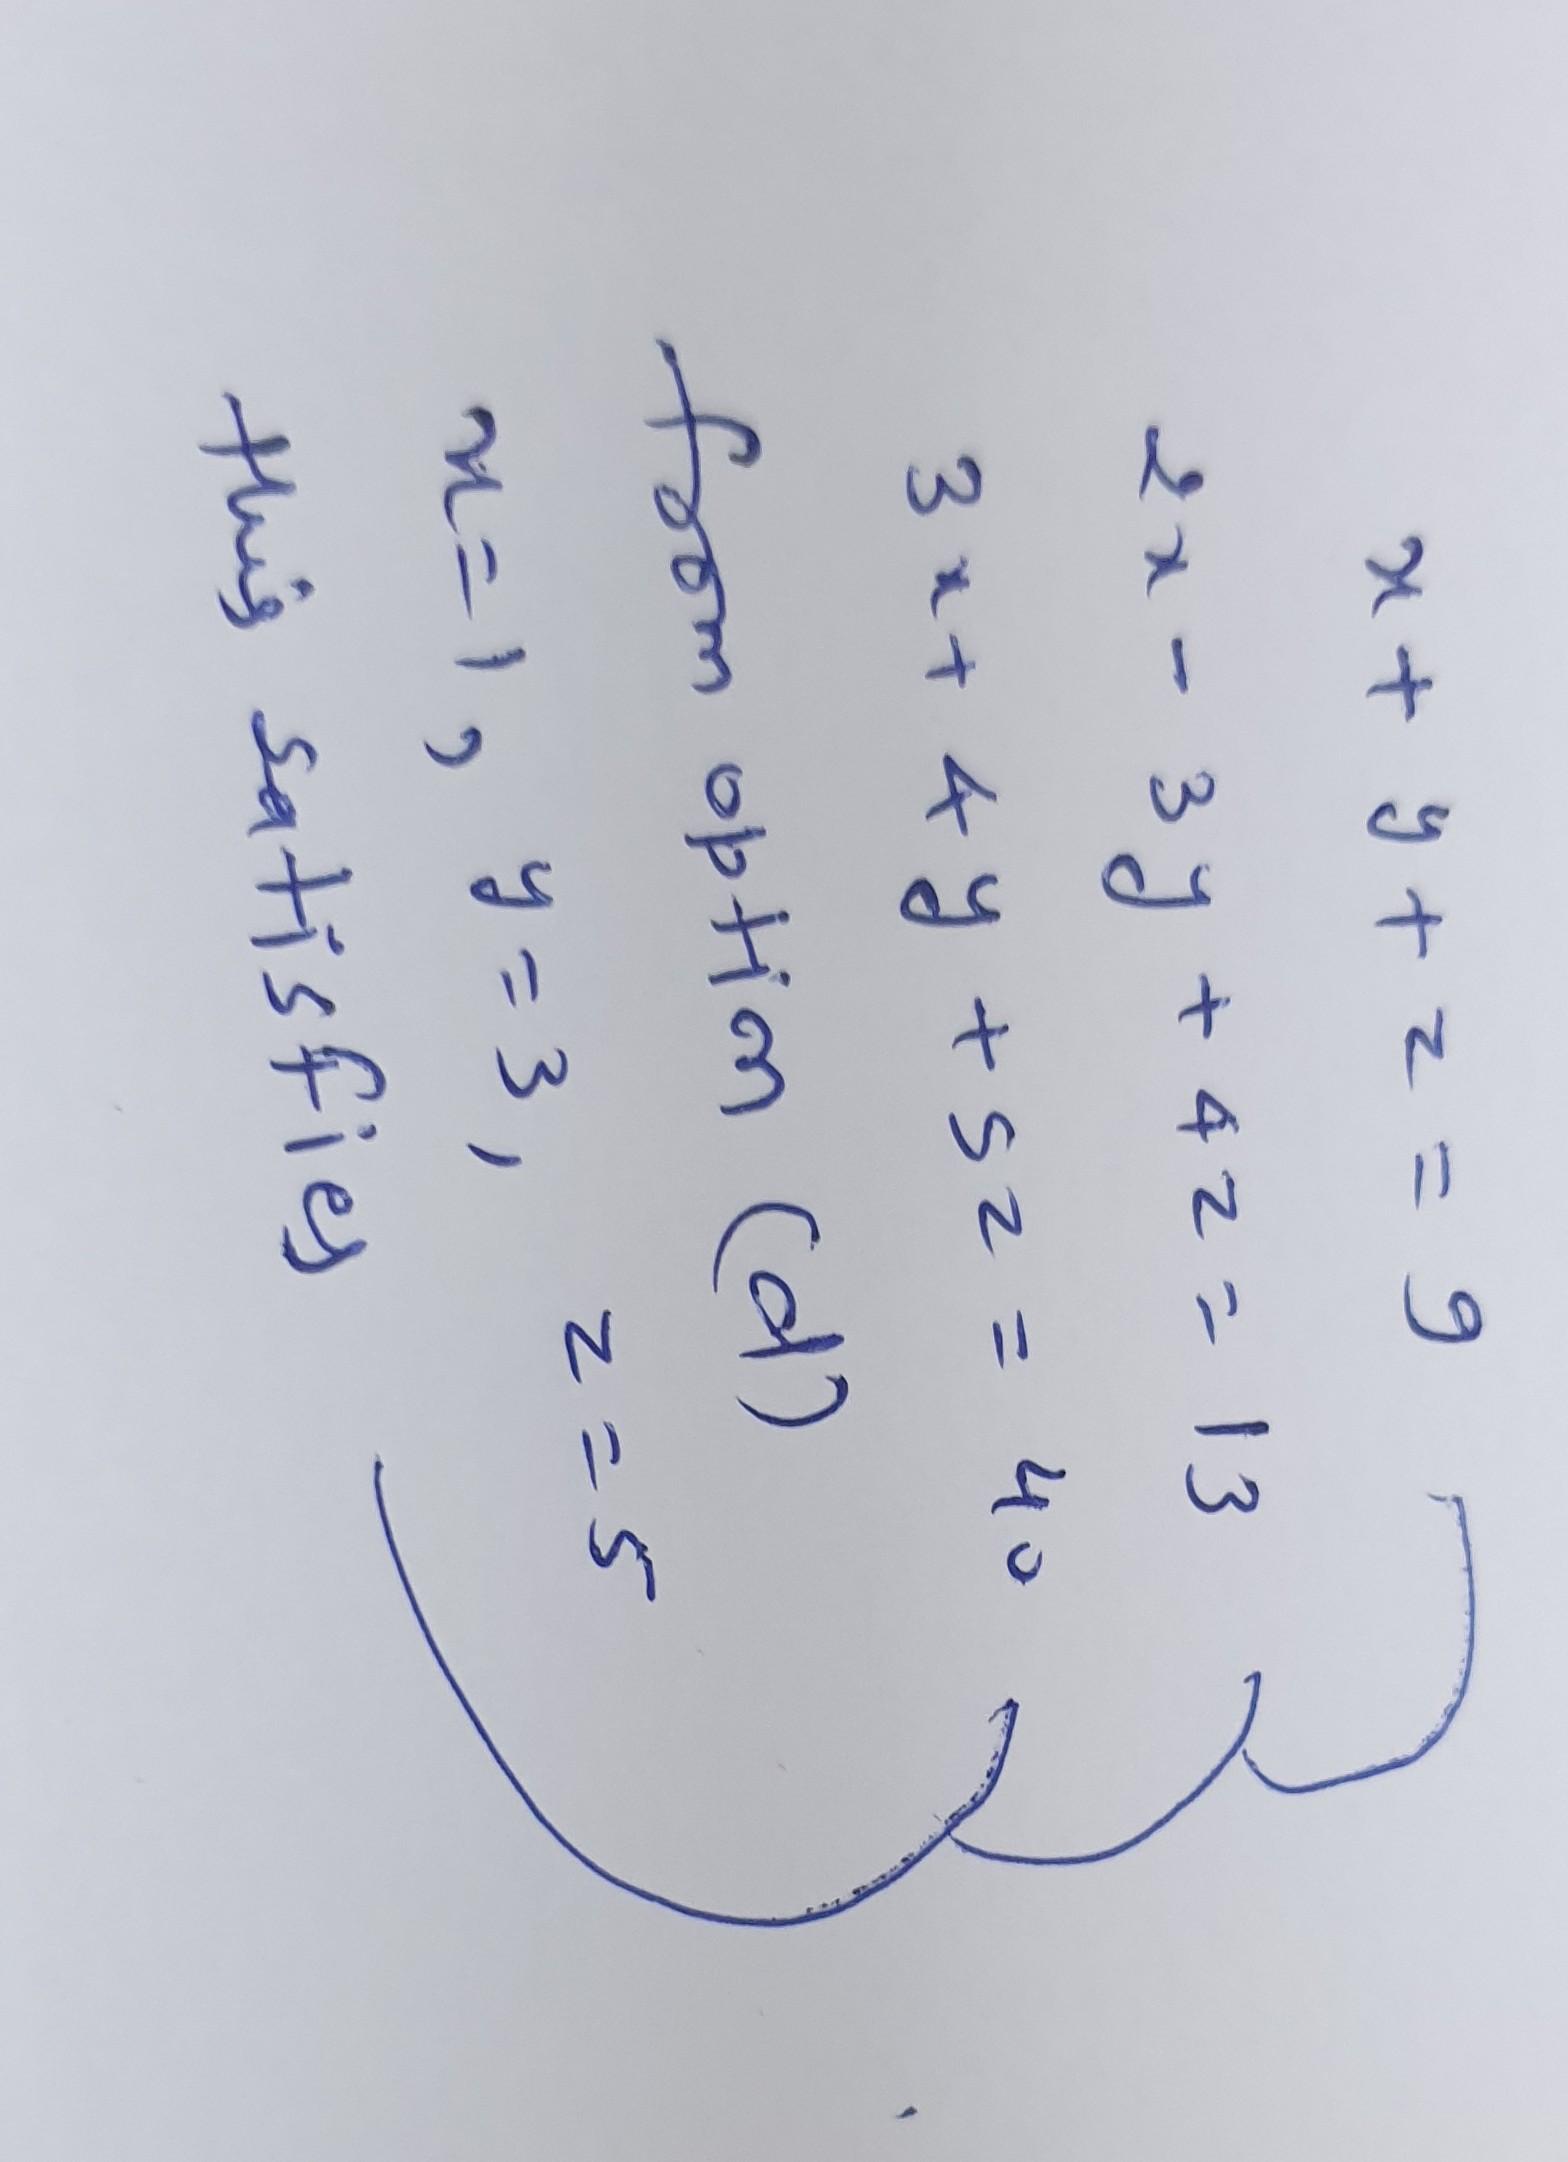 x + y + z = 9
2x - 3y + 4z = 13
3x + 4y + 5z = 40
from option (d)
x = 1, y = 3, z = 5
this satisfies